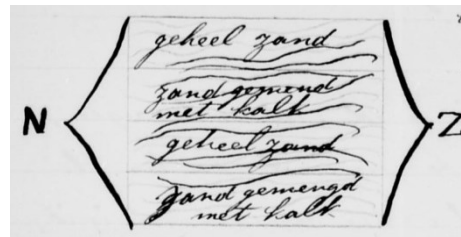 geheel zand
zand gemend
met kalk
N Z
geheel zand
zand gemengd
met kalk